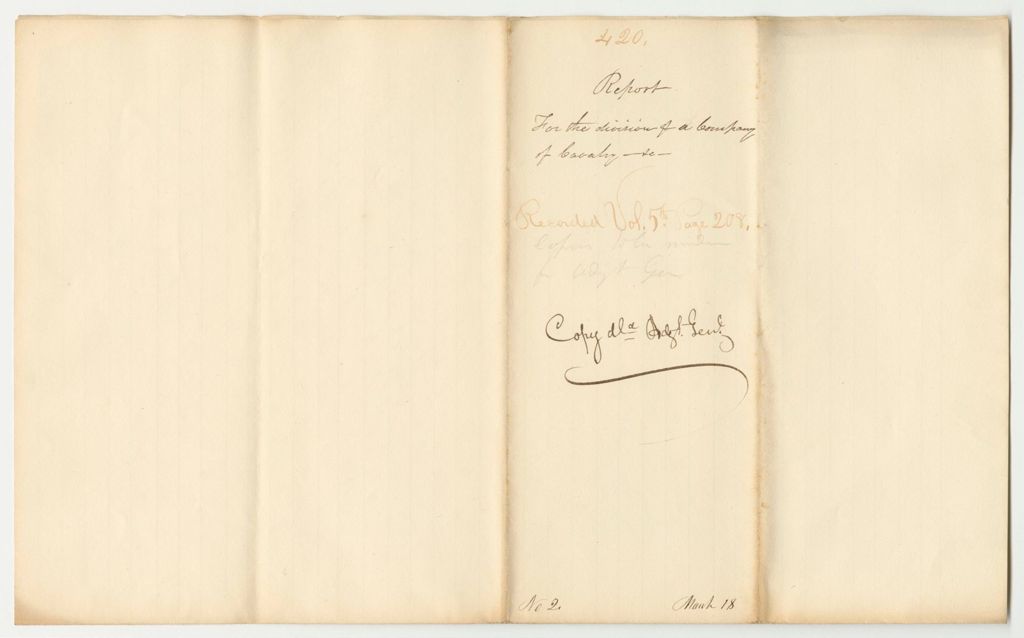 420.
Report
For the division of a Company
of Cavalry —&c—
Recorded Vol. 5th Page 208.
Copy
for Adjt Gen
Copy dld Adjt. Genl.
No 2. March 18